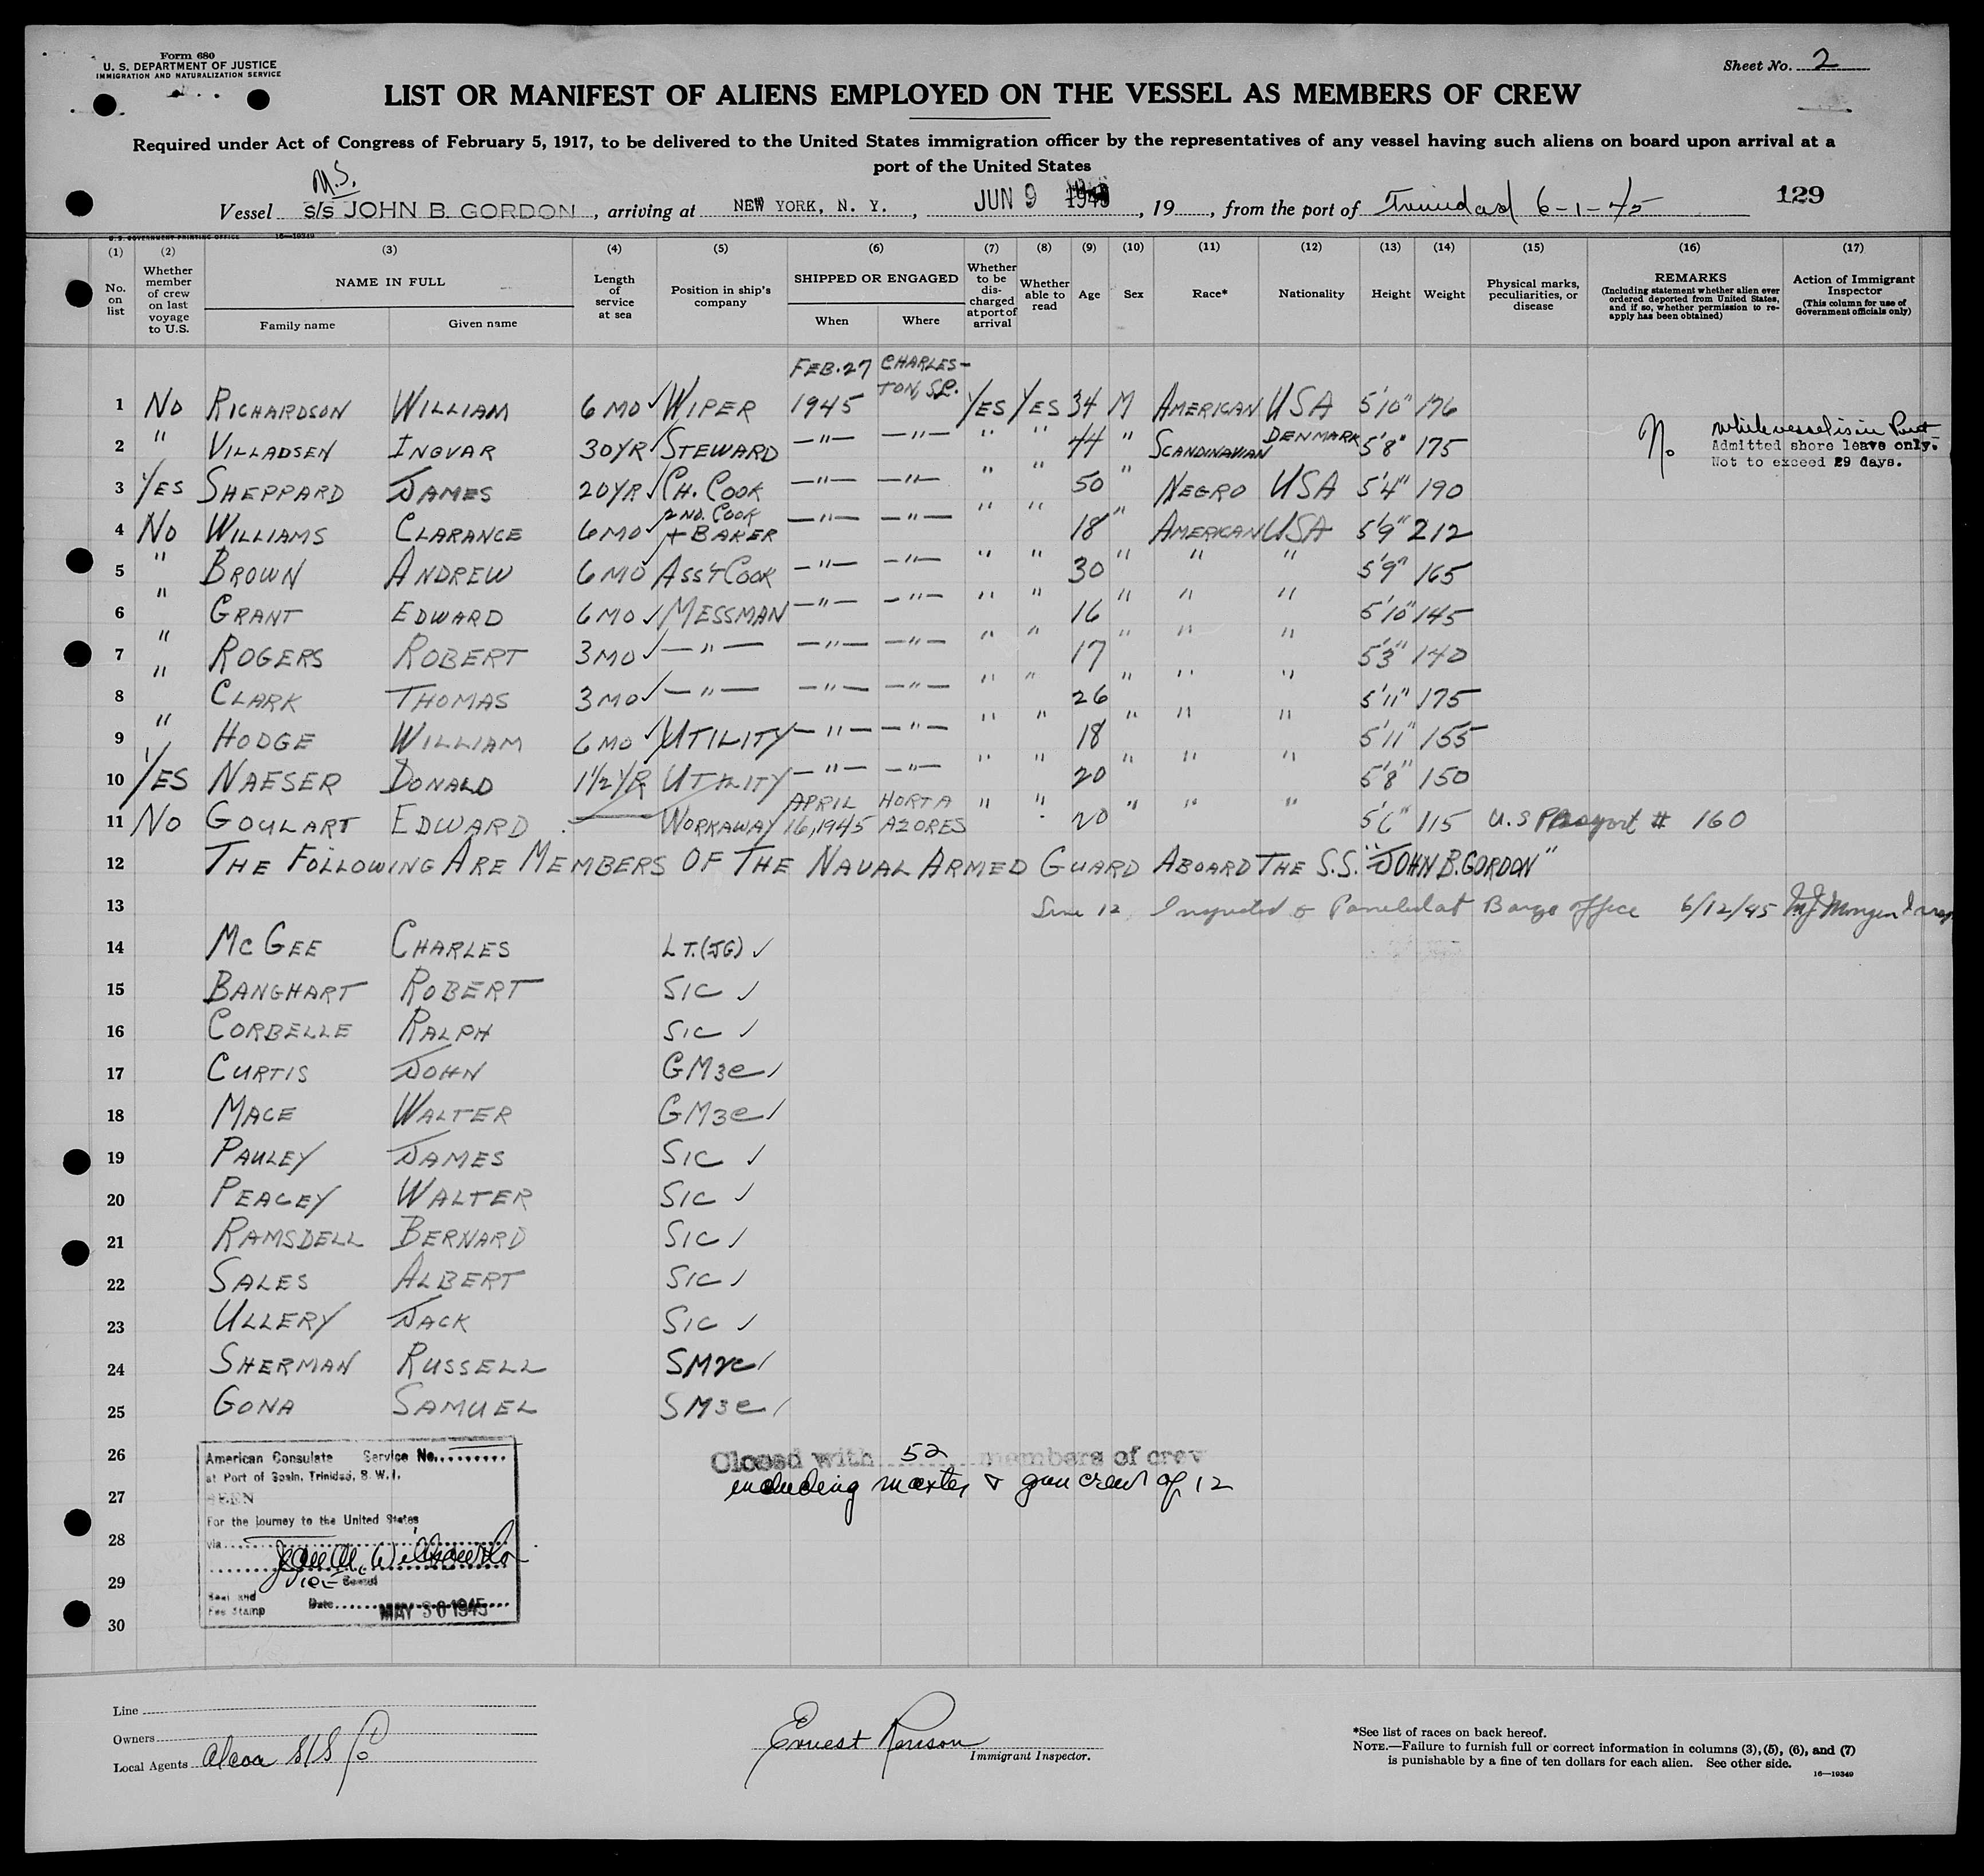 Form 680
U. S. DEPARTMENT OF JUSTICE
IMMIGRATION AND NATURALIZATION SERVICE
Sheet No. 2
LIST OR MANIFEST OF ALIENS EMPLOYED ON THE VESSEL AS MEMBERS OF CREW
Required under Act of Congress of February 5, 1917, to be delivered to the United States immigration officer by the representatives of any vessel having such aliens on board upon arrival at a
port of the United States
M.S.
Vessel S/S JOHN B. GORDON, arriving at NEW YORK, N. Y., JUN 9 1945, 19, from the port of Trinidad 6-1-45 129
U. S. GOVERNMENT PRINTING OFFICE 16—19349
(1) (2) (3) (4) (5) (6) (7) (8) (9) (10) (11) (12) (13) (14) (15) (16) (17)
No. on list
Whether member of crew on last voyage to U.S.
NAME IN FULL
Family name Given name
Length of service at sea
Position in ship's company
SHIPPED OR ENGAGED
When Where
Whether to be discharged at port of arrival
Whether able to read
Age
Sex
Race*
Nationality
Height
Weight
Physical marks, peculiarities, or disease
REMARKS
(Including statement whether alien ever ordered deported from United States, and if so, whether permission to reapply has been obtained)
Action of Immigrant Inspector
(This column for use of Government officials only)
FEB. 27 CHARLES-
TON, S.C.
1 NO RICHARDSON WILLIAM 6 MO ✓ WIPER 1945 YES YES 34 M AMERICAN USA 5'10" 176
2 " VILLADSEN INGVAR 30YR ✓ STEWARD —"— —"— " " 44 " SCANDINAVIAN DENMARK 5'8" 175 No while vessel is in Port
Admitted shore leave only.
Not to exceed 29 days.
3 YES SHEPPARD JAMES 20YR ✓ CH. COOK —"— —"— " " 50 " NEGRO USA 5'4" 190
4 NO WILLIAMS CLARANCE 6MO ✓ 2ND. COOK + BAKER —"— —"— " " 18 " AMERICAN USA 5'9" 212
5 " BROWN ANDREW 6 MO ✓ ASS'T COOK —"— —"— " " 30 " " " 5'9" 165
6 " GRANT EDWARD 6 MO ✓ MESSMAN —"— —"— " " 16 " " " 5'10" 145
7 " ROGERS ROBERT 3 MO ✓ —"— —"— —"— " " 17 " " " 5'3" 140
8 " CLARK THOMAS 3 MO ✓ —"— —"— —"— " " 26 " " " 5'11" 175
9 " HODGE WILLIAM 6 MO ✓ UTILITY —"— —"— " " 18 " " " 5'11" 155
10 YES NAESER DONALD 1 1/2 YR UTILITY —"— —"— " " 20 " " " 5'8" 150
11 NO GOULART EDWARD — WORKAWAY APRIL 16, 1945 HORTA AZORES " " 20 " " " 5'6" 115 U.S Passport # 160
12 THE FOLLOWING ARE MEMBERS OF THE NAVAL ARMED GUARD ABOARD THE S.S. "JOHN B. GORDON"
13 Line 12 Inspected & Paroled at Barge office 6/12/45
14 MCGEE CHARLES LT.(JG) ✓
15 BANGHART ROBERT S1C ✓
16 CORBELLE RALPH S1C ✓
17 CURTIS JOHN GM3C ✓
18 MACE WALTER GM3C ✓
19 PAULEY JAMES S1C ✓
20 PEACEY WALTER S1C ✓
21 RAMSDELL BERNARD S1C ✓
22 SALES ALBERT S1C ✓
23 ULLERY JACK S1C ✓
24 SHERMAN RUSSELL SM2C ✓
25 GONA SAMUEL SM3C ✓
26
27
28
29
30
American Consulate Service No.
at Port of Spain, Trinidad, B. W. I.
SEEN
For the journey to the United States
via
Vice Consul
Seal and
Fee Stamp Date MAY 30 1945
Closed with 52 members of crew
including master & gun crew of 12
Line
Owners
Local Agents Alcoa S/S Co
Ernest Renson
Immigrant Inspector.
*See list of races on back hereof.
NOTE.—Failure to furnish full or correct information in columns (3), (5), (6), and (7)
is punishable by a fine of ten dollars for each alien. See other side.
16—19349